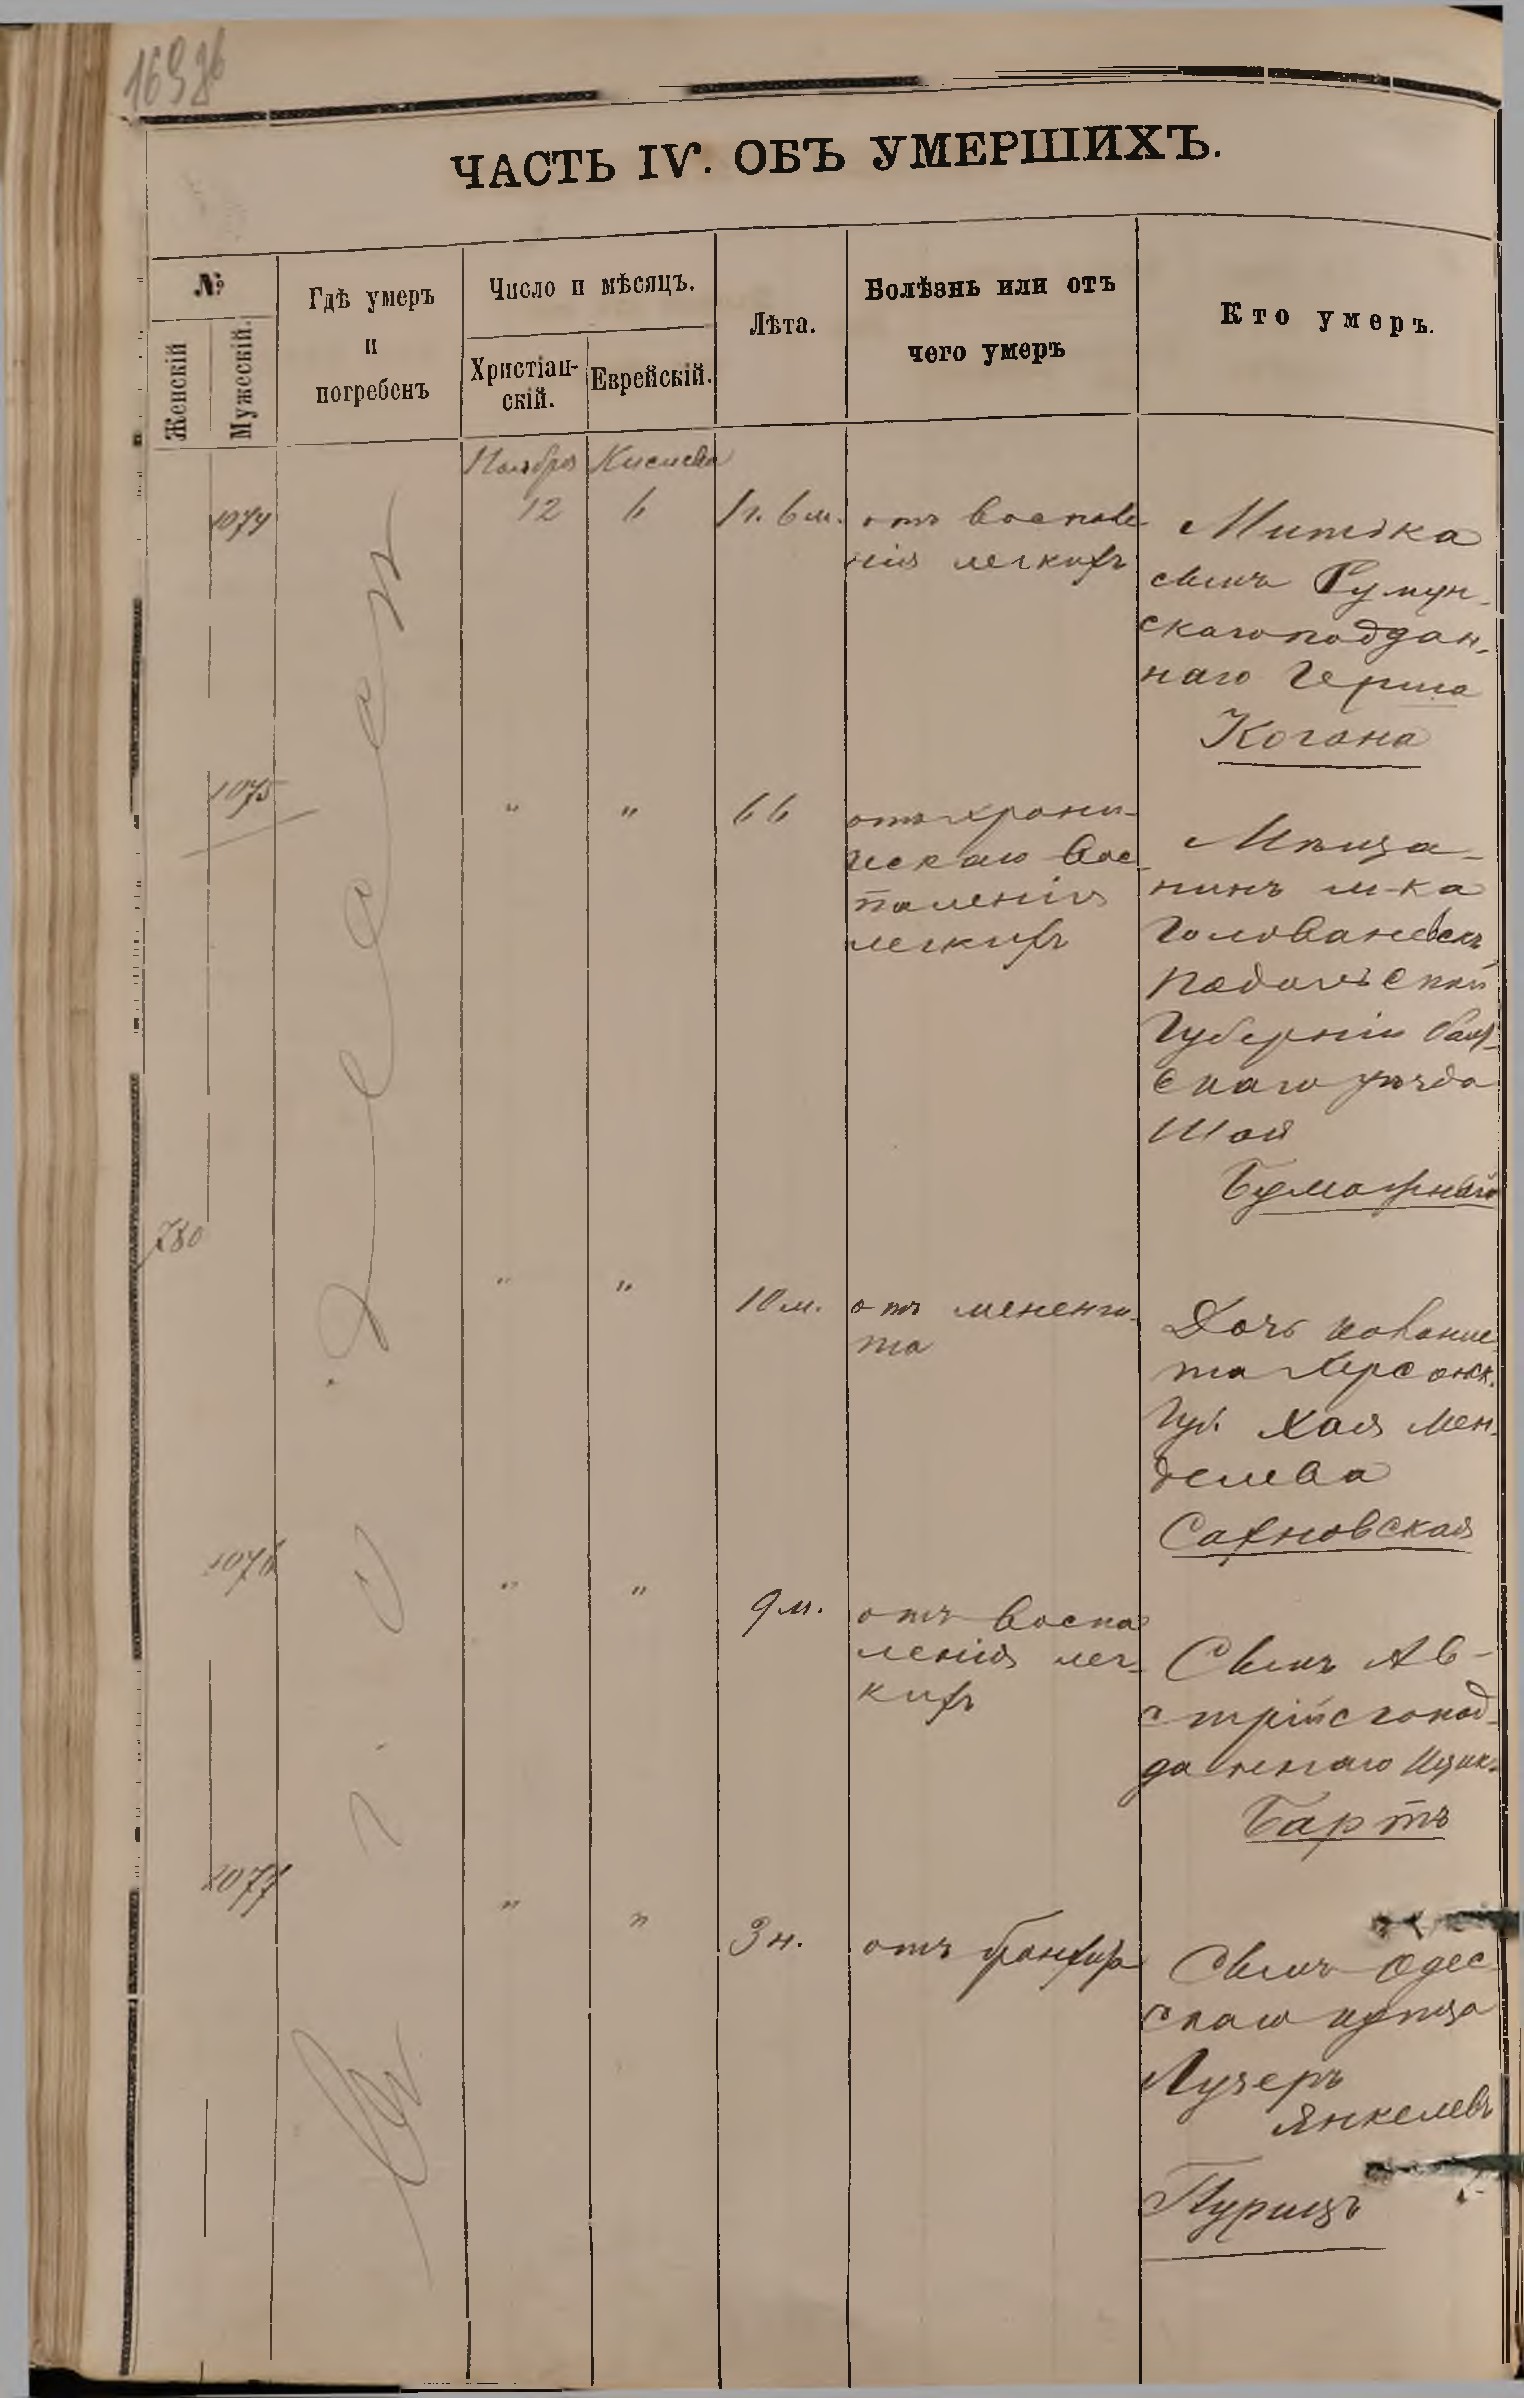 ЧАСТЬ IV. ОБЪ УМЕРШИХЪ.
№
Женскій
Мужескій.
Гдѣ умеръ
и
погребенъ
Число и мѣсяцъ.
Христіан-
скій.
Еврейскій.
Лѣта.
Болѣзнь или отъ
чего умеръ
Кто умеръ.
Ноября
Кислева
1074
12
6
1г. 6м.
отъ воспале-
нія легкихъ
Митька
сынъ Румун-
скаго поддан-
наго Герша
Когана
1075
"
"
66
отъ хрони-
ческаго вос-
паленія
легкихъ
Мѣща-
нинъ м-ка
Голованевскъ
Подольской
Губерніи Балт-
скаго уѣзда
Шая
Бумажный
780
"
"
10 м.
отъ мененги-
та
Дочь колонис
та Херсонск.
Губ. Хая Мен-
делева
Сахновская
1076
"
"
9 м.
отъ воспа
ленія лег-
кихъ
Сынъ Ав-
стрійск. под-
даннаго Ицик.
Бартъ
1077
"
"
3 н.
отъ бронхита
Сынъ Одес
скаго купца
Лузеръ
Янкелевъ
Пурицъ
Въ г. Одессѣ